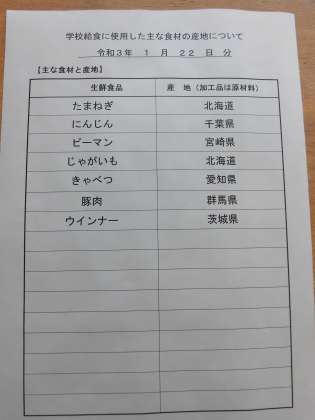 学校給食に使用した主な食材の産地について
令和3年 1 月 22 日 分
【主な食材と産地】
生鮮食品 産 地（加工品は原材料）
たまねぎ 北海道
にんじん 千葉県
ピーマン 宮崎県
じゃがいも 北海道
きゃべつ 愛知県
豚肉 群馬県
ウインナー 茨城県